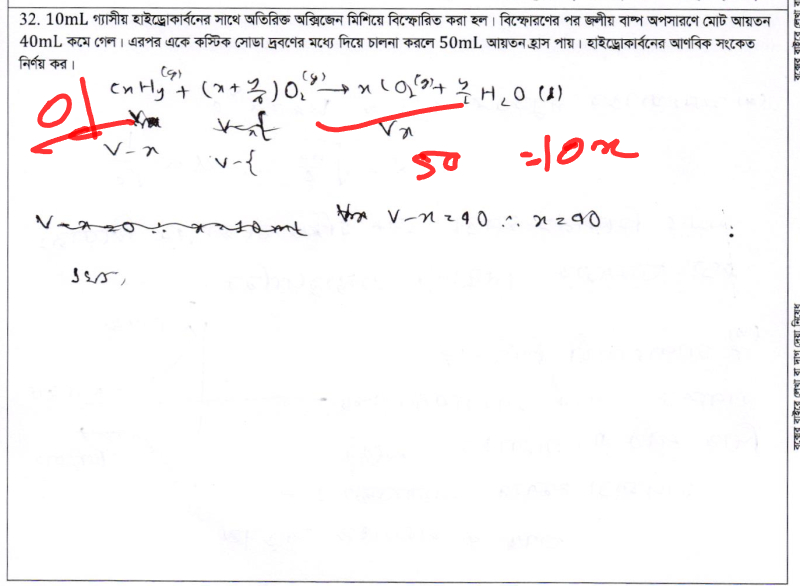 32. 10mL গ্যাসীয় হাইড্রোকার্বনের সাথে অতিরিক্ত অক্সিজেন মিশিয়ে বিস্ফোরিত করা হল। বিস্ফোরণের পর জলীয় বাষ্প অপসারণে মোট আয়তন
40mL কমে গেল। এরপর একে কস্টিক সোডা দ্রবণের মধ্যে দিয়ে চালনা করলে 50mL আয়তন হ্রাস পায়। হাইড্রোকার্বনের আণবিক সংকেত
নির্ণয় কর।
CxHy(g) + (x + y/4)O₂(g) → x CO₂(g) + y/2 H₂O (l)
Vx
V-x
50 =10x
0
V-x=0 ∴ x=10ml V-x=40 ∴ x=40